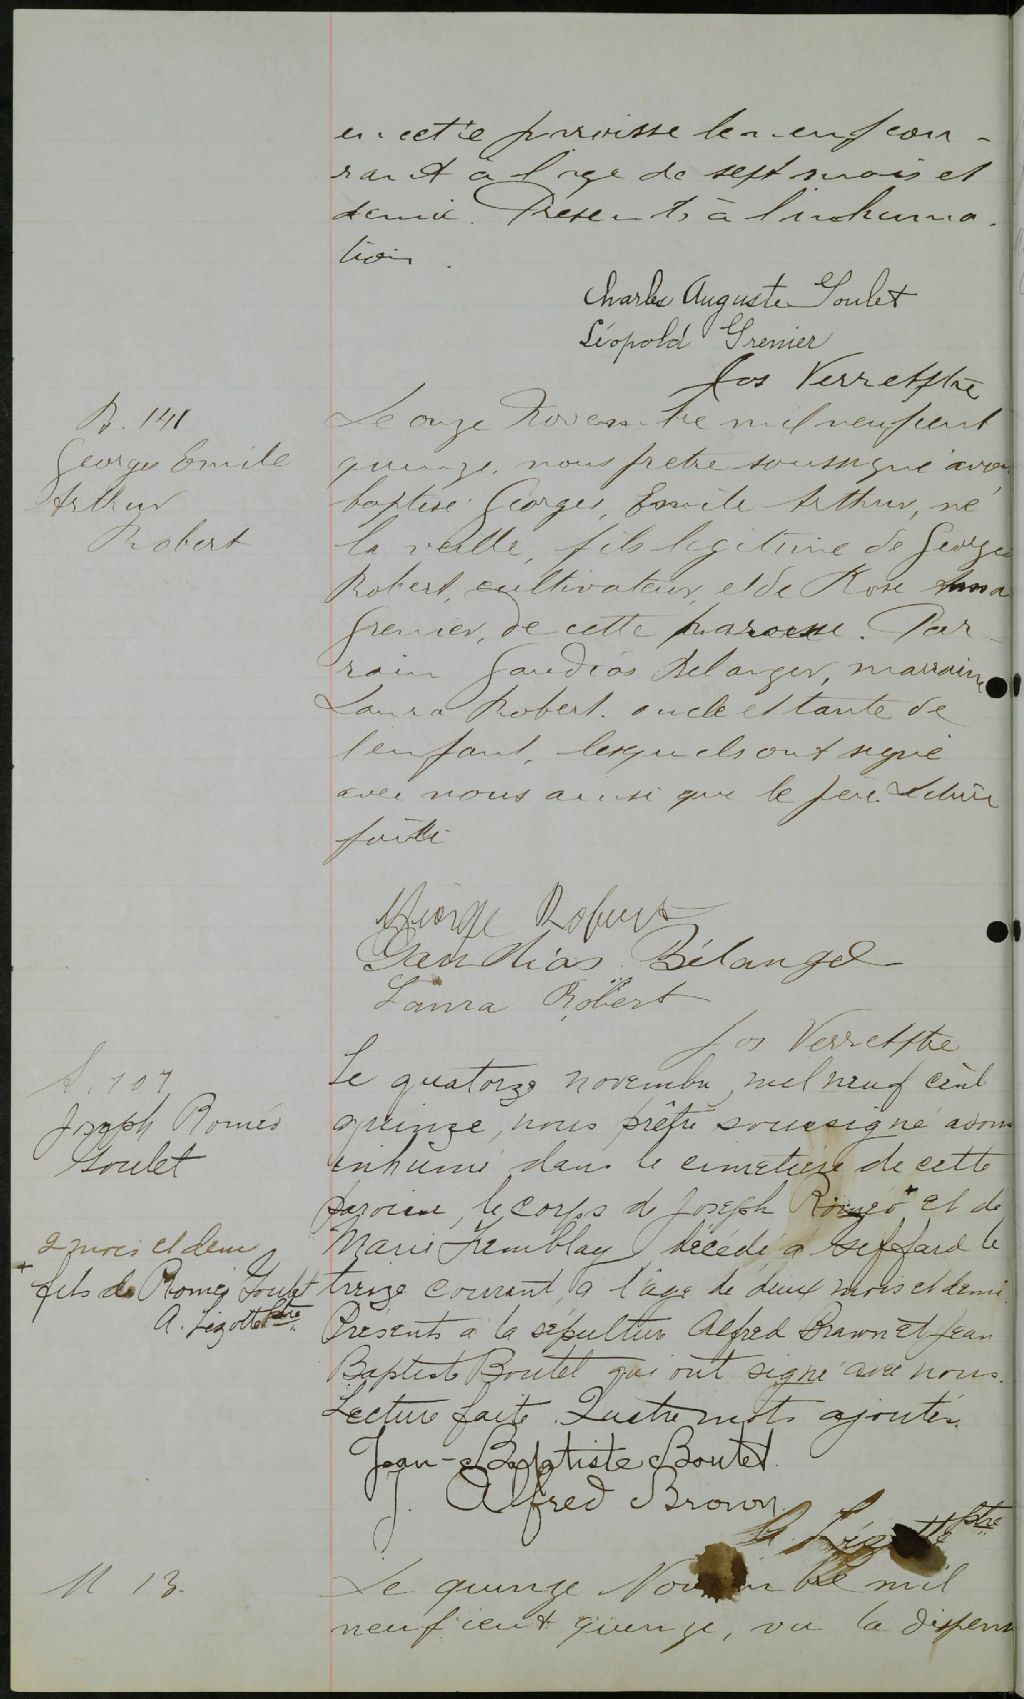 en cette paroisse le neuf cou-
rant à l'age de sept mois et
demie. Présents à l'inhuma-
tion.
Charles Auguste Goulet
Léopold Grenier
Jos Verret Ptre
B. 141
Georges Emile
Arthur
Robert
Le onze Novembre mil neuf cent
quinze, nous prêtre soussigné avons
baptisé Georges, Emile Arthur, né
la veille, fils légitime de Georges
Robert, cultivateur, et de Rose Anna
Grenier, de cette paroisse. Par-
rain Gaudias Bélanger, marraine
Laura Robert. oncle et tante de
l'enfant, lesquels ont signé
avec nous ainsi que le père. Lecture
faite
George Robert
Gaudias Bélanger
Laura Robert
Jos Verret Ptre
S. 107
Joseph Roméo
Goulet
2 mois et demi
+ fils de Roméo Goulet
A. Lizotte Ptre
Le quatorze novembre, mil neuf cent
quinze, nous prêtre soussigné avons
inhumé dans le cimetière de cette
paroisse, le corps de Joseph Roméo + et de
Marie Tremblay décédé à Thetford le
treize courant, à l'âge de deux mois et demi.
Présents à la sépulture Alfred Brown et Jean
Baptiste Boutet qui ont signé avec nous.
Lecture faite. Quatre mots ajoutés.
Jean-Baptiste Boutet.
J. Alfred Brown.
A. Lizotte Ptre
M 13.
Le quinze Novembre mil
neuf cent quinze, vu la dispense